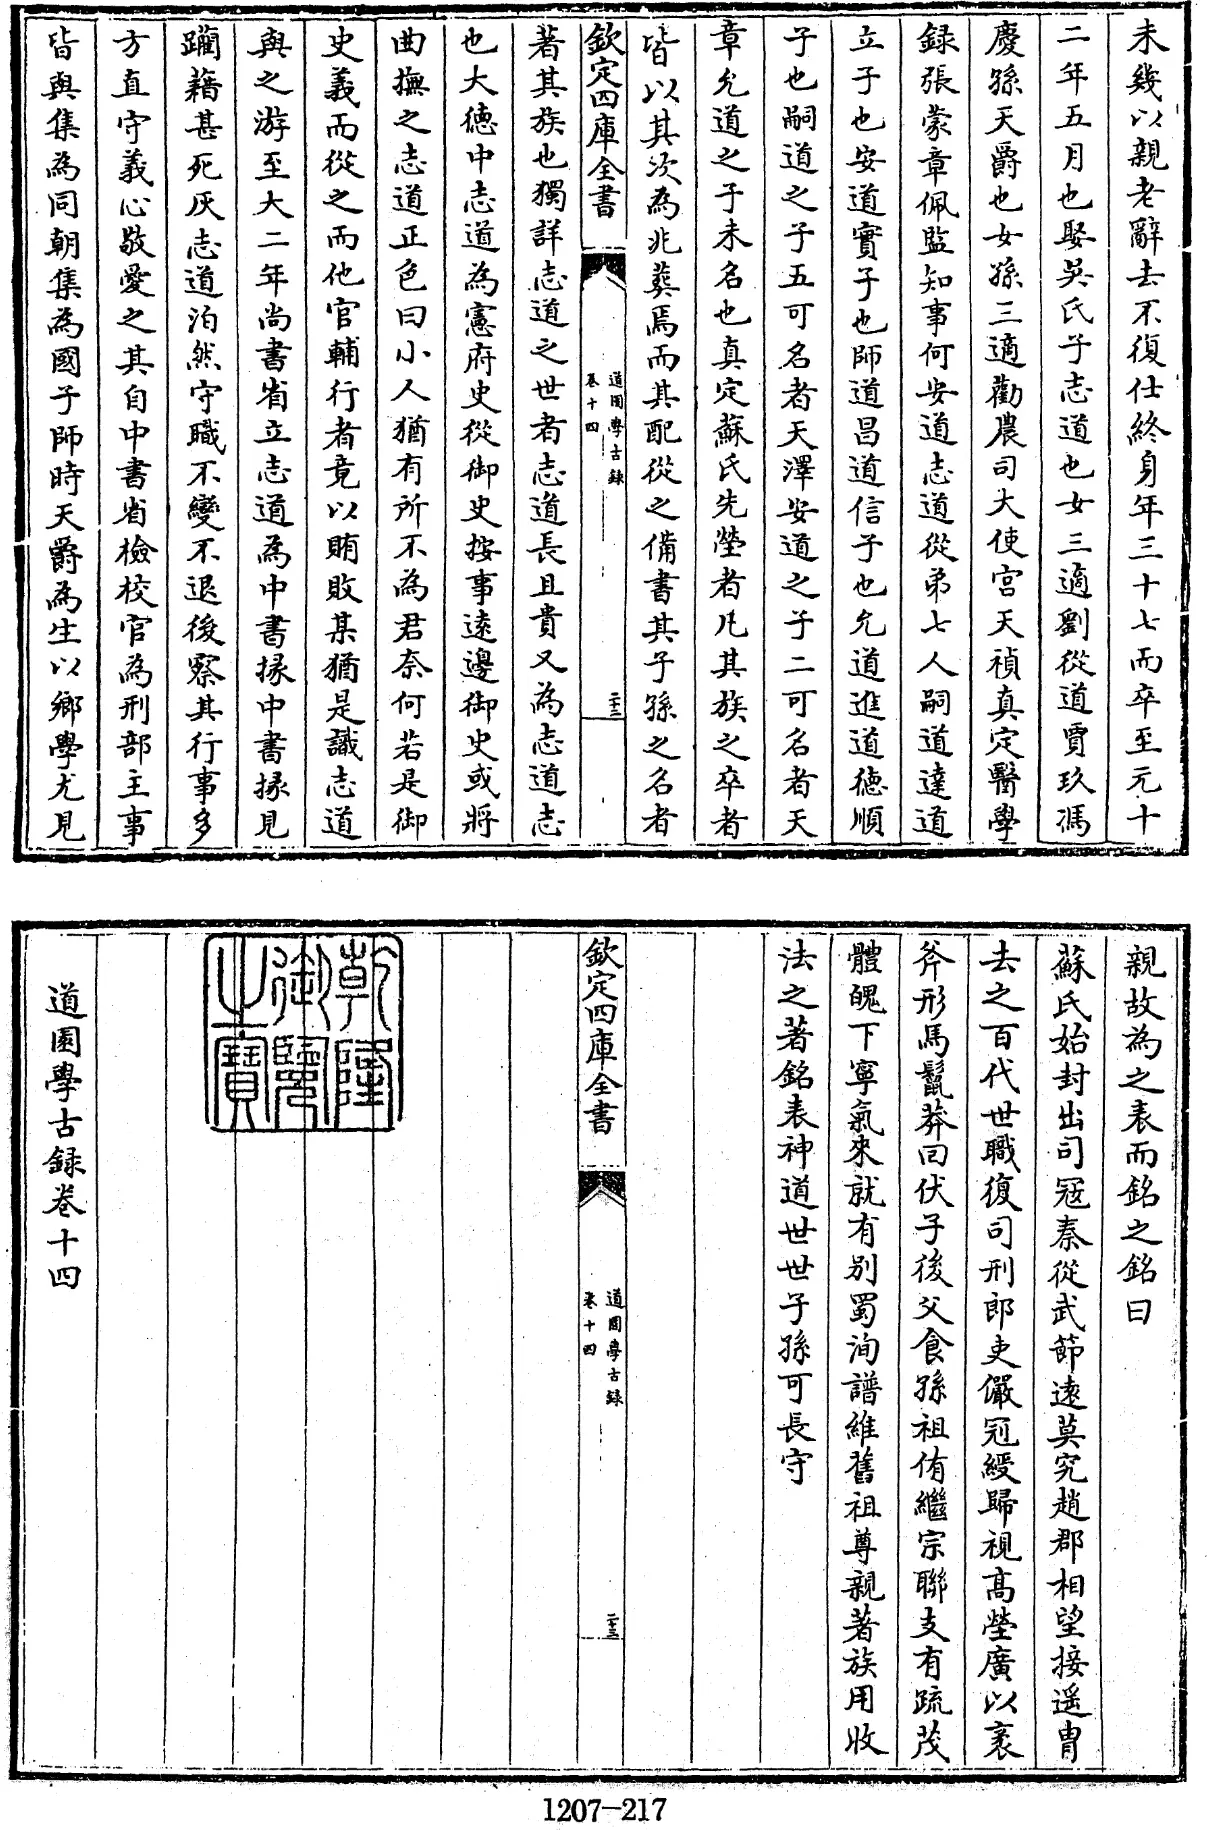 未幾以親老辭去不復仕終身年三十七而卒至元十
二年五月也娶吳氏子志道也女三適劉從道賈玖馮
慶孫天爵也女孫三適勸農司大使宮天禎真定醫學
録張蒙章佩監知事何安道志道從弟七人嗣道達道
立子也安道實子也師道昌道信子也允道進道德順
子也嗣道之子五可名者天澤安道之子二可名者天
章允道之子未名也真定蘇氏先塋者凡其族之卒者
皆以其次為兆葬焉而其配從之備書其子孫之名者
欽定四庫全書
道園學古録
卷十四
二十二
著其族也獨詳志道之世者志道長且貴又為志道志
也大徳中志道為憲府史從御史按事遠邊御史或將
曲撫之志道正色曰小人猶有所不為君奈何若是御
史義而從之而他官輔行者竟以賄敗某猶是識志道
與之游至大二年尚書省立志道為中書掾中書掾見
躪藉甚死灰志道泊然守職不變不退後察其行事多
方直守義心敬愛之其自中書省檢校官為刑部主事
皆與集為同朝集為國子師時天爵為生以鄉學尤見
親故為之表而銘之銘曰
蘇氏始封出司冦秦從武節遠莫究趙郡相望接遥胄
去之百代世職復司刑郎吏儼冠綬歸視髙塋廣以袤
斧形馬鬣莽回伏子後父食孫祖侑繼宗聯支有疏茂
體魄下寧氣來就有别蜀洵譜維舊祖尊親著族用收
法之著銘表神道世世子孫可長守
欽定四庫全書
道園學古録
卷十四
二十三
乾隆
御覽
之寶
道園學古録卷十四
1207-217